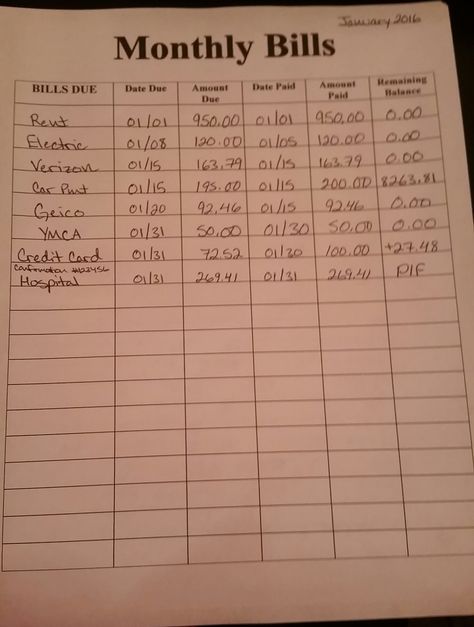 January 2016
Monthly Bills
BILLS DUE Date Due Amount Due Date Paid Amount Paid Remaining Balance
Rent 01/01 950.00 01/01 950.00 0.00
Electric 01/08 120.00 01/05 120.00 0.00
Verizon 01/15 163.79 01/15 163.79 0.00
Car Pmt 01/15 195.00 01/15 200.00 8263.81
Geico 01/20 92.46 01/15 92.46 0.00
YMCA 01/31 50.00 01/30 50.00 0.00
Credit Card 01/31 72.52 01/30 100.00 +27.48
Confirmation #123456
Hospital 01/31 269.41 01/31 269.41 PIF